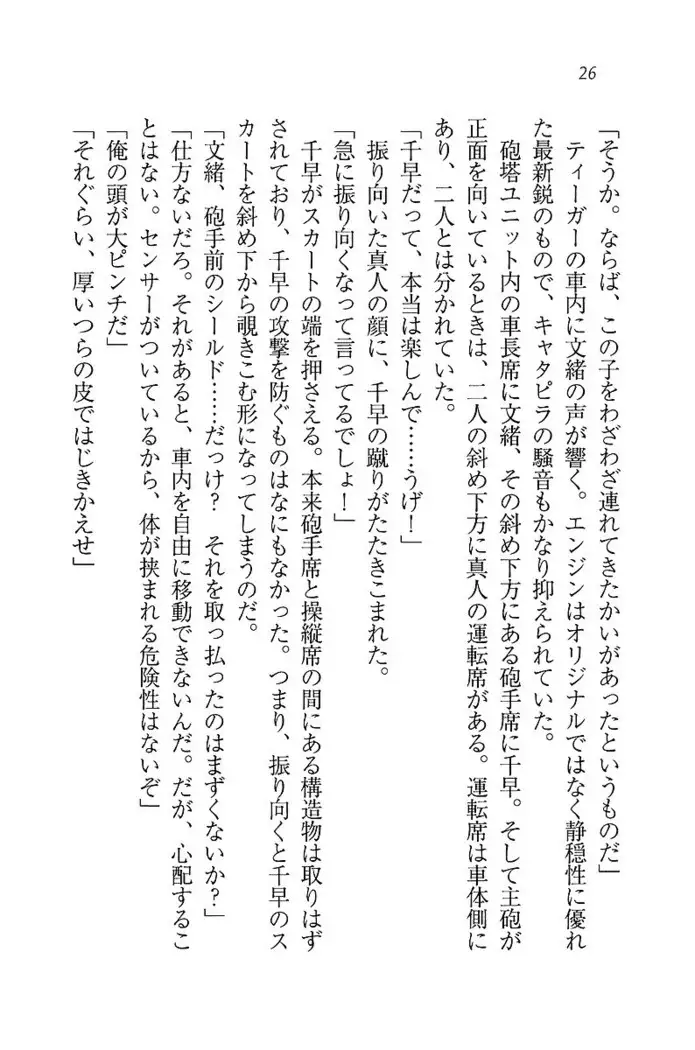 26
「そうか。ならば、この子をわざわざ連れてきたかいがあったというものだ」
ティーガーの車内に文緒の声が響く。エンジンはオリジナルではなく静穏性に優れ
た最新鋭のもので、キャタピラの騒音もかなり抑えられていた。
砲塔ユニット内の車長席に文緒、その斜め下方にある砲手席に千早。そして主砲が
正面を向いているときは、二人の斜め下方に真人の運転席がある。運転席は車体側に
あり、二人とは分かれていた。
「千早だって、本当は楽しんで……うげ！」
振り向いた真人の顔に、千早の蹴りがたたきこまれた。
「急に振り向くなって言ってるでしょ！」
千早がスカートの端を押さえる。本来砲手席と操縦席の間にある構造物は取りはず
されており、千早の攻撃を防ぐものはなにもなかった。つまり、振り向くと千早のス
カートを斜め下から覗きこむ形になってしまうのだ。
「文緒、砲手前のシールド……だっけ？　それを取っ払ったのはまずくないか？」
「仕方ないだろ。それがあると、車内を自由に移動できないんだ。だが、心配するこ
とはない。センサーがついているから、体が挟まれる危険性はないぞ」
「俺の頭が大ピンチだ」
「それぐらい、厚いつらの皮ではじきかえせ」